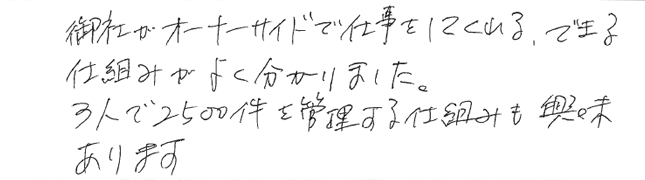 御社がオーナーサイドで仕事をしてくれる、できる
仕組みがよく分かりました。
3人で2500件を管理する仕組みも興味
あります